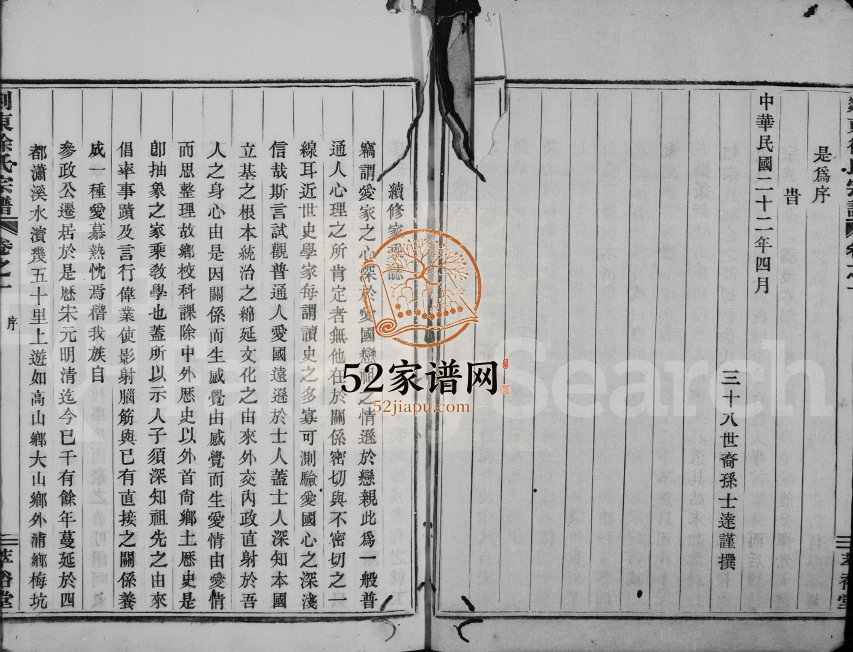 是爲序
旹
中華民國二十二年四月
三十八世裔孫士達謹撰
續修家乘誌
竊謂愛家之心深於愛國戀國之情遜於戀親此爲一般普
通人心理之所肯定者無他在於關係密切與不密切之一
線耳近世史學家每謂讀史之多寡可測驗愛國心之深淺
信哉斯言試觀普通人愛國遠遜於士人蓋士人深知本國
立基之根本統治之綿延文化之由來外交內政直射於吾
人之身心由是因關係而生感覺由感覺而生愛情由愛情
而思整理故鄉校科課除中外歷史以外首尙鄉土歷史是
卽抽象之家乘敎學也蓋所以示人子須深知祖先之由來
倡率事蹟及言行偉業使影射腦筋與己有直接之關係養
成一種愛慕熱忱焉僭我族自
參政公遷居於是歷宋元明清迄今已千有餘年蔓延於四
都瀟溪水濱幾五十里上遊如高山鄉大山鄉外浦鄉梅坑
剡東徐氏宗譜 卷之一 序 萃裕堂
52家谱网
52jiapu.com
Search